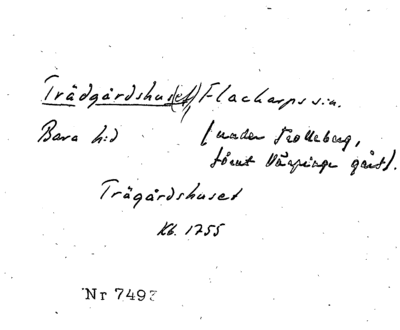 Trädgårdshus(et) Flackarps sn.
Bara hd (under Trolleberg,
förut Värpinge gård).
Trägårdshuset
Kb. 1755
Nr 7493